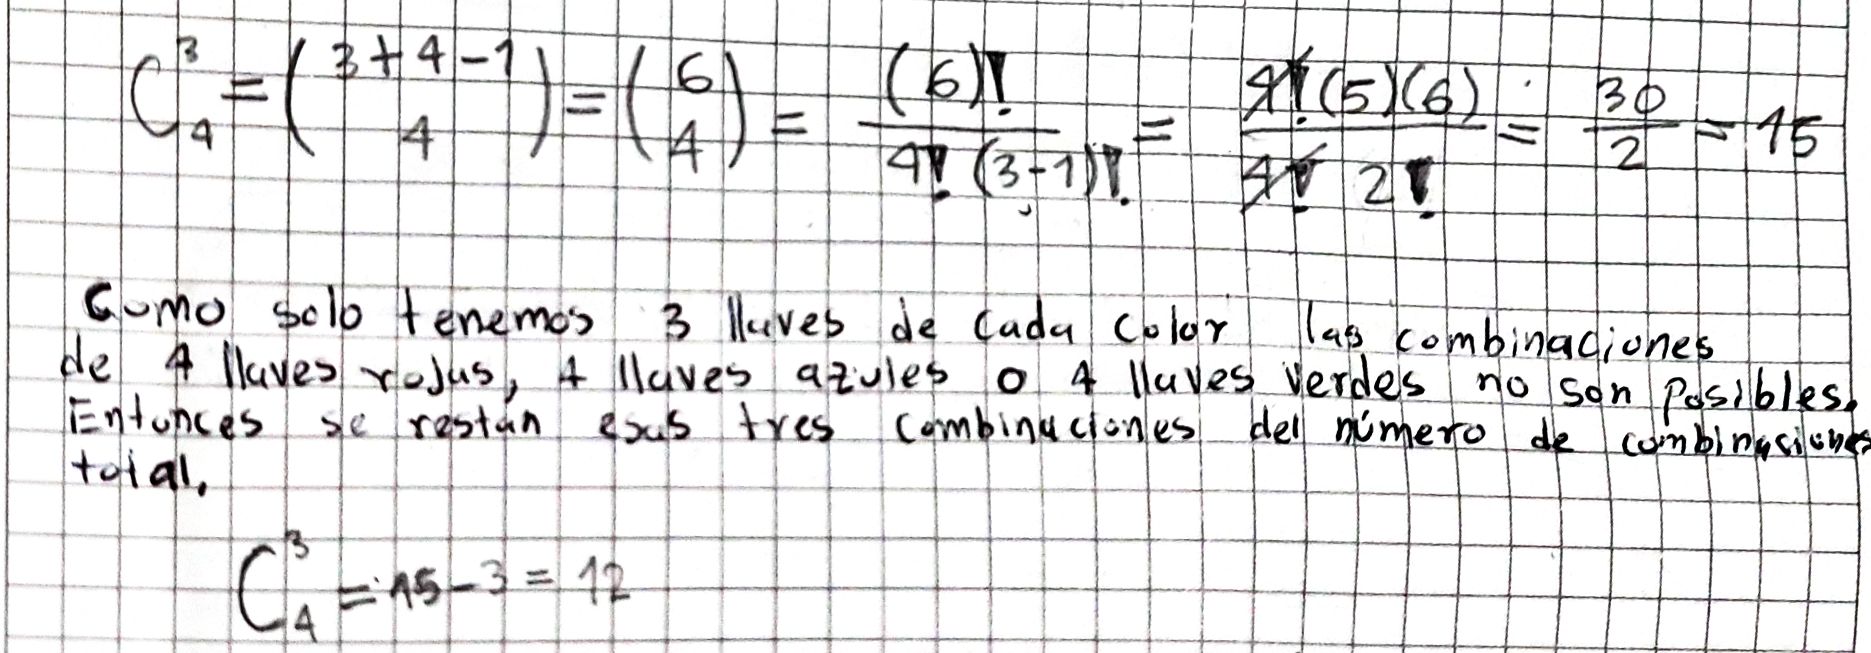 C₄³ = (3+4-1 / 4) = (6 / 4) = (6)! / 4! (3-1)! = 4! (5)(6) / 4! 2! = 30 / 2 = 15
Como solo tenemos 3 llaves de cada color las combinaciones
de 4 llaves rojas, 4 llaves azules o 4 llaves verdes no son posibles.
Entonces se restan esas tres combinaciones del número de combinaciones
total.
C₄³ = 15 - 3 = 12